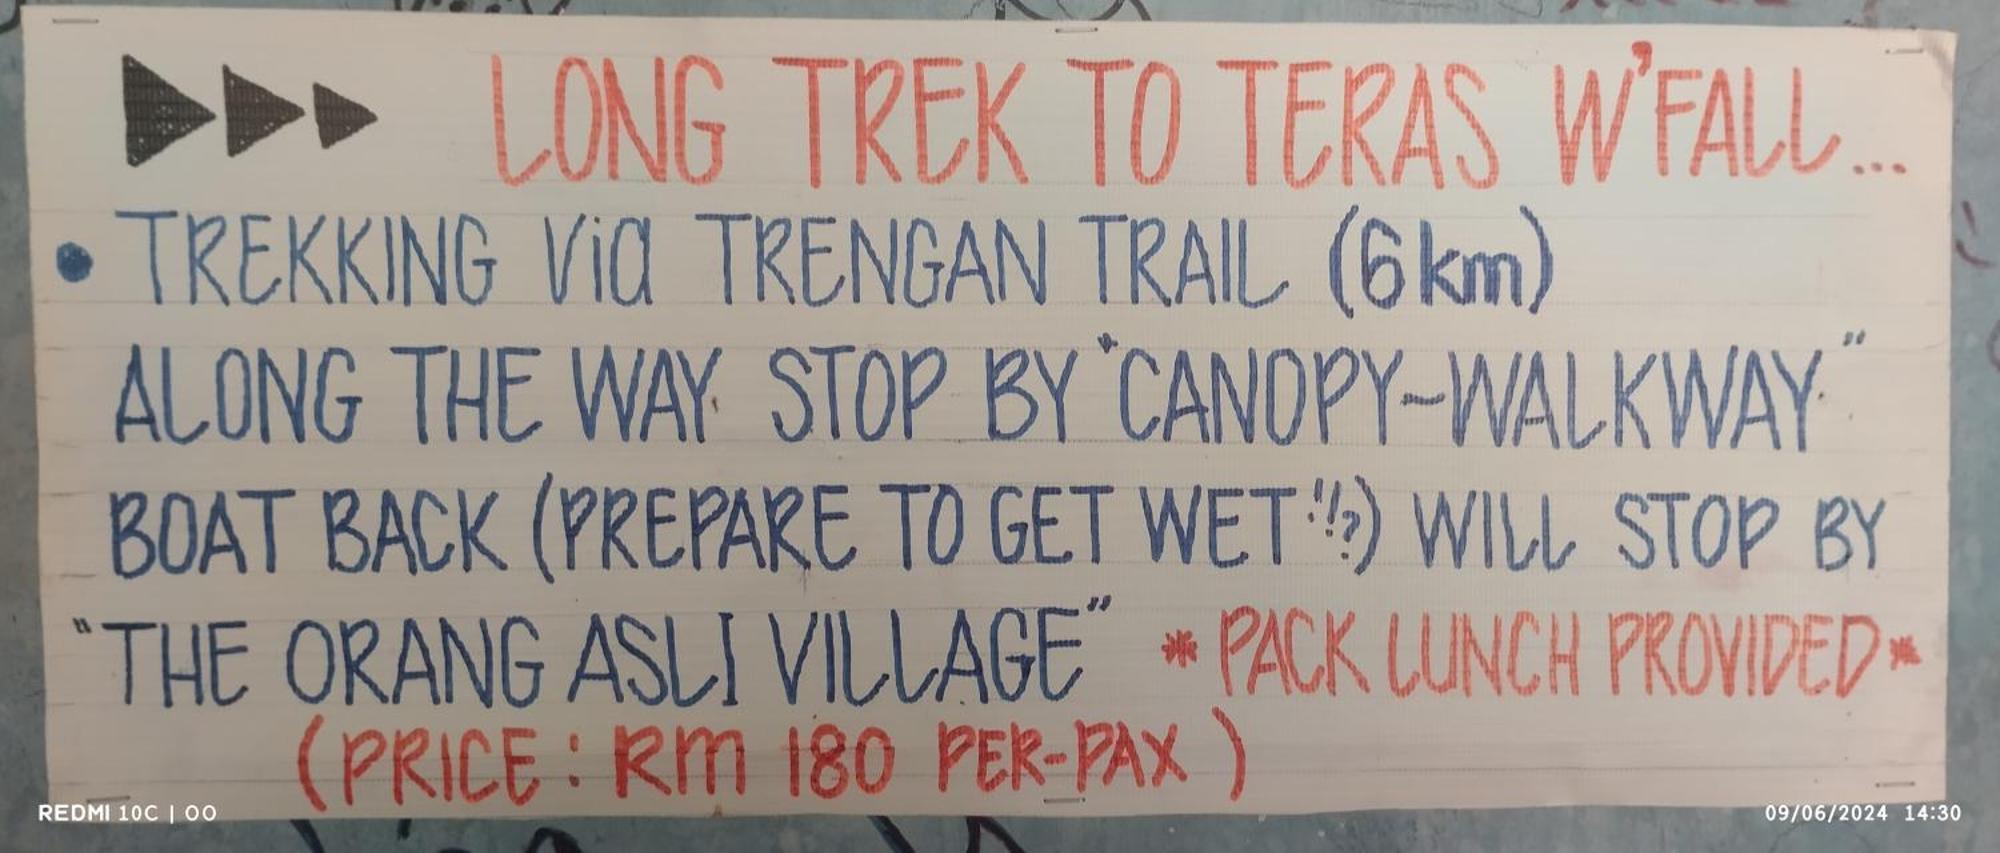 LONG TREK TO TERAS W'FALL...
• TREKKING Via TRENGAN TRAIL (6km)
ALONG THE WAY STOP BY "CANOPY-WALKWAY"
BOAT BACK (PREPARE TO GET WET!!?) WILL STOP BY
"THE ORANG ASLI VILLAGE" *PACK LUNCH PROVIDED*
(PRICE: RM 180 PER-PAX)
REDMI 10C | OO
09/06/2024 14:30